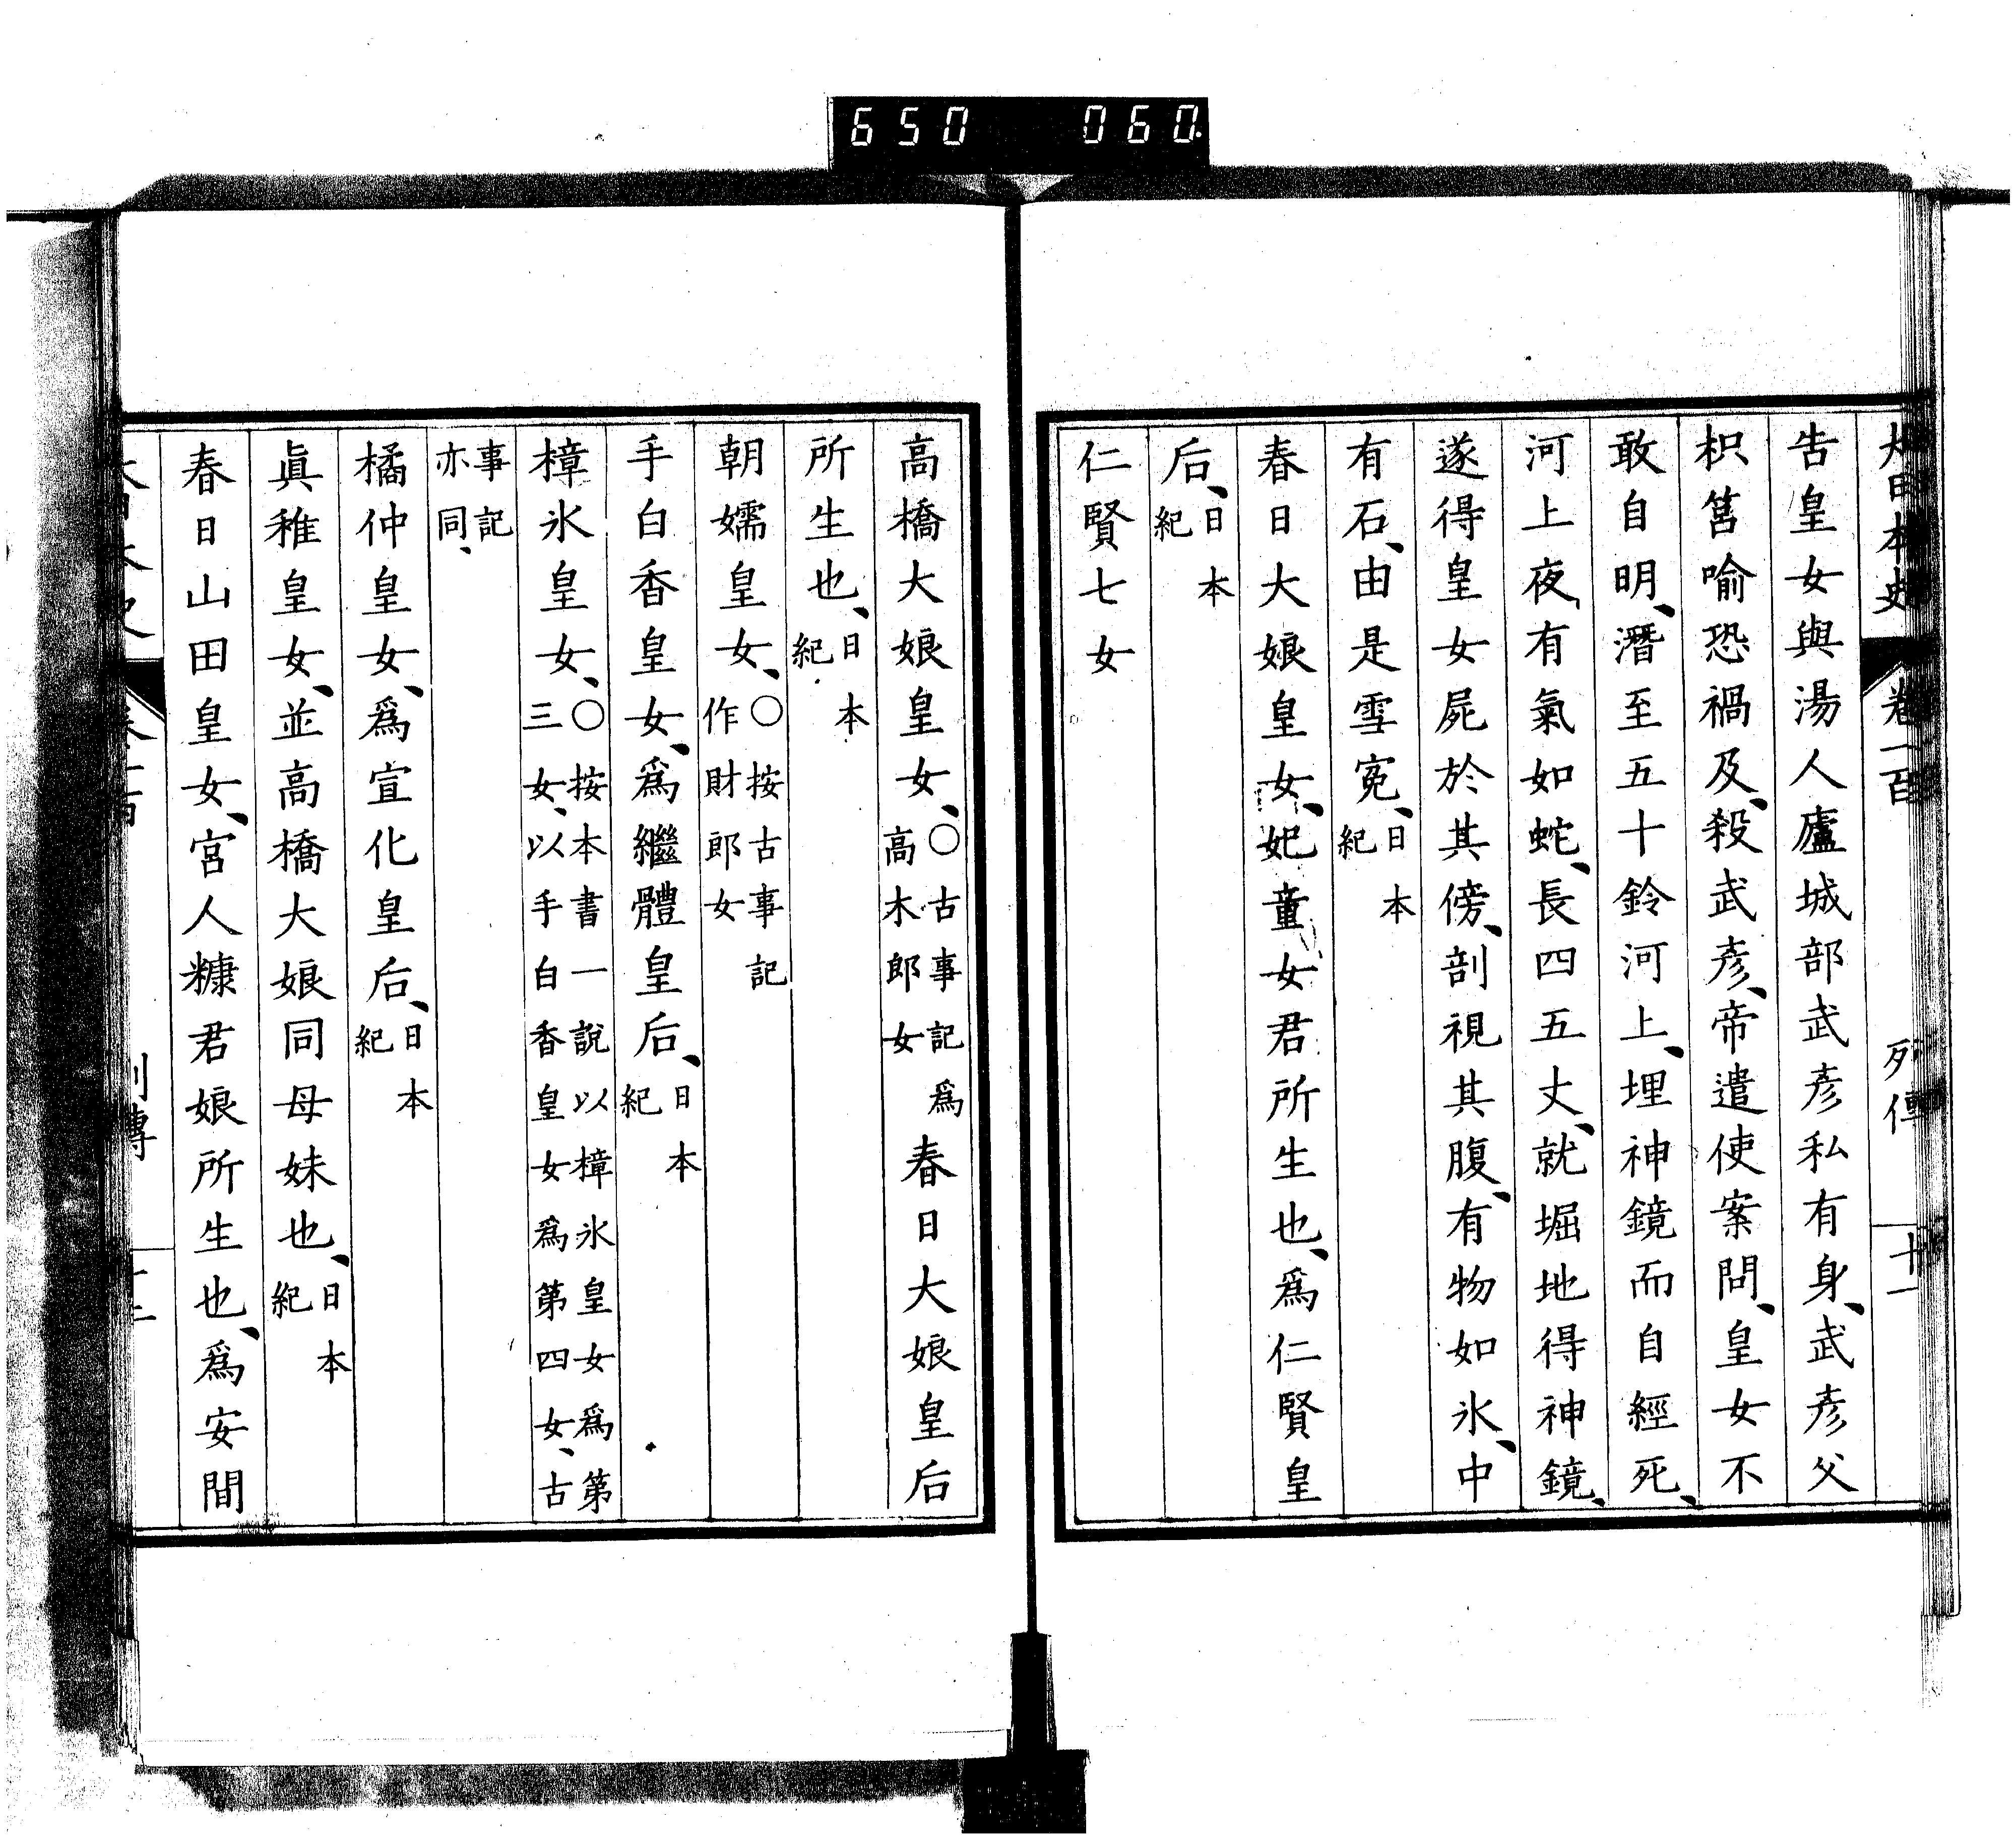 650 060
大日本史 卷一百 列傳 十一
告皇女與湯人廬城部武彥私有身、武彥父
枳莒喩恐禍及、殺武彥、帝遣使案問、皇女不
敢自明、潛至五十鈴河上、埋神鏡而自經死、
河上夜、有氣如蛇、長四五丈、就堀地得神鏡、
遂得皇女屍於其傍、剖視其腹、有物如氷、中
有石、由是雪寃、日本紀
春日大娘皇女、妃童女君所生也、爲仁賢皇
后、日本紀
仁賢七女
高橋大娘皇女、○古事記爲高木郎女春日大娘皇后
所生也、日本紀
朝嬬皇女、○按古事記作財郎女
手白香皇女、爲繼體皇后、日本紀
樟氷皇女、○按本書一說以樟氷皇女爲第三女、以手白香皇女爲第四女、古
事記亦同、
橘仲皇女、爲宣化皇后、日本紀
眞稚皇女、並高橋大娘同母妹也、日本紀
春日山田皇女、宮人糠君娘所生也、爲安閒